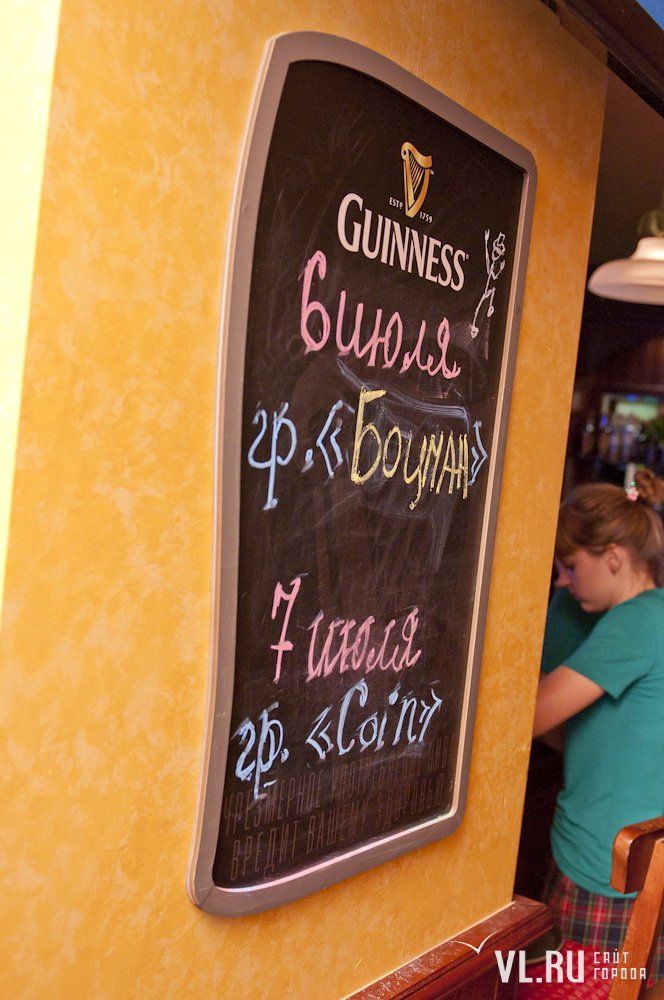 ESTD 1759
GUINNESS
6 июля
гр. «Боцман»
7 июля
гр. «Coin»
ЧРЕЗМЕРНОЕ УПОТРЕБЛЕНИЕ
ВРЕДИТ ВАШЕМУ ЗДОРОВЬЮ
VL.RU САЙТ
ГОРОДА